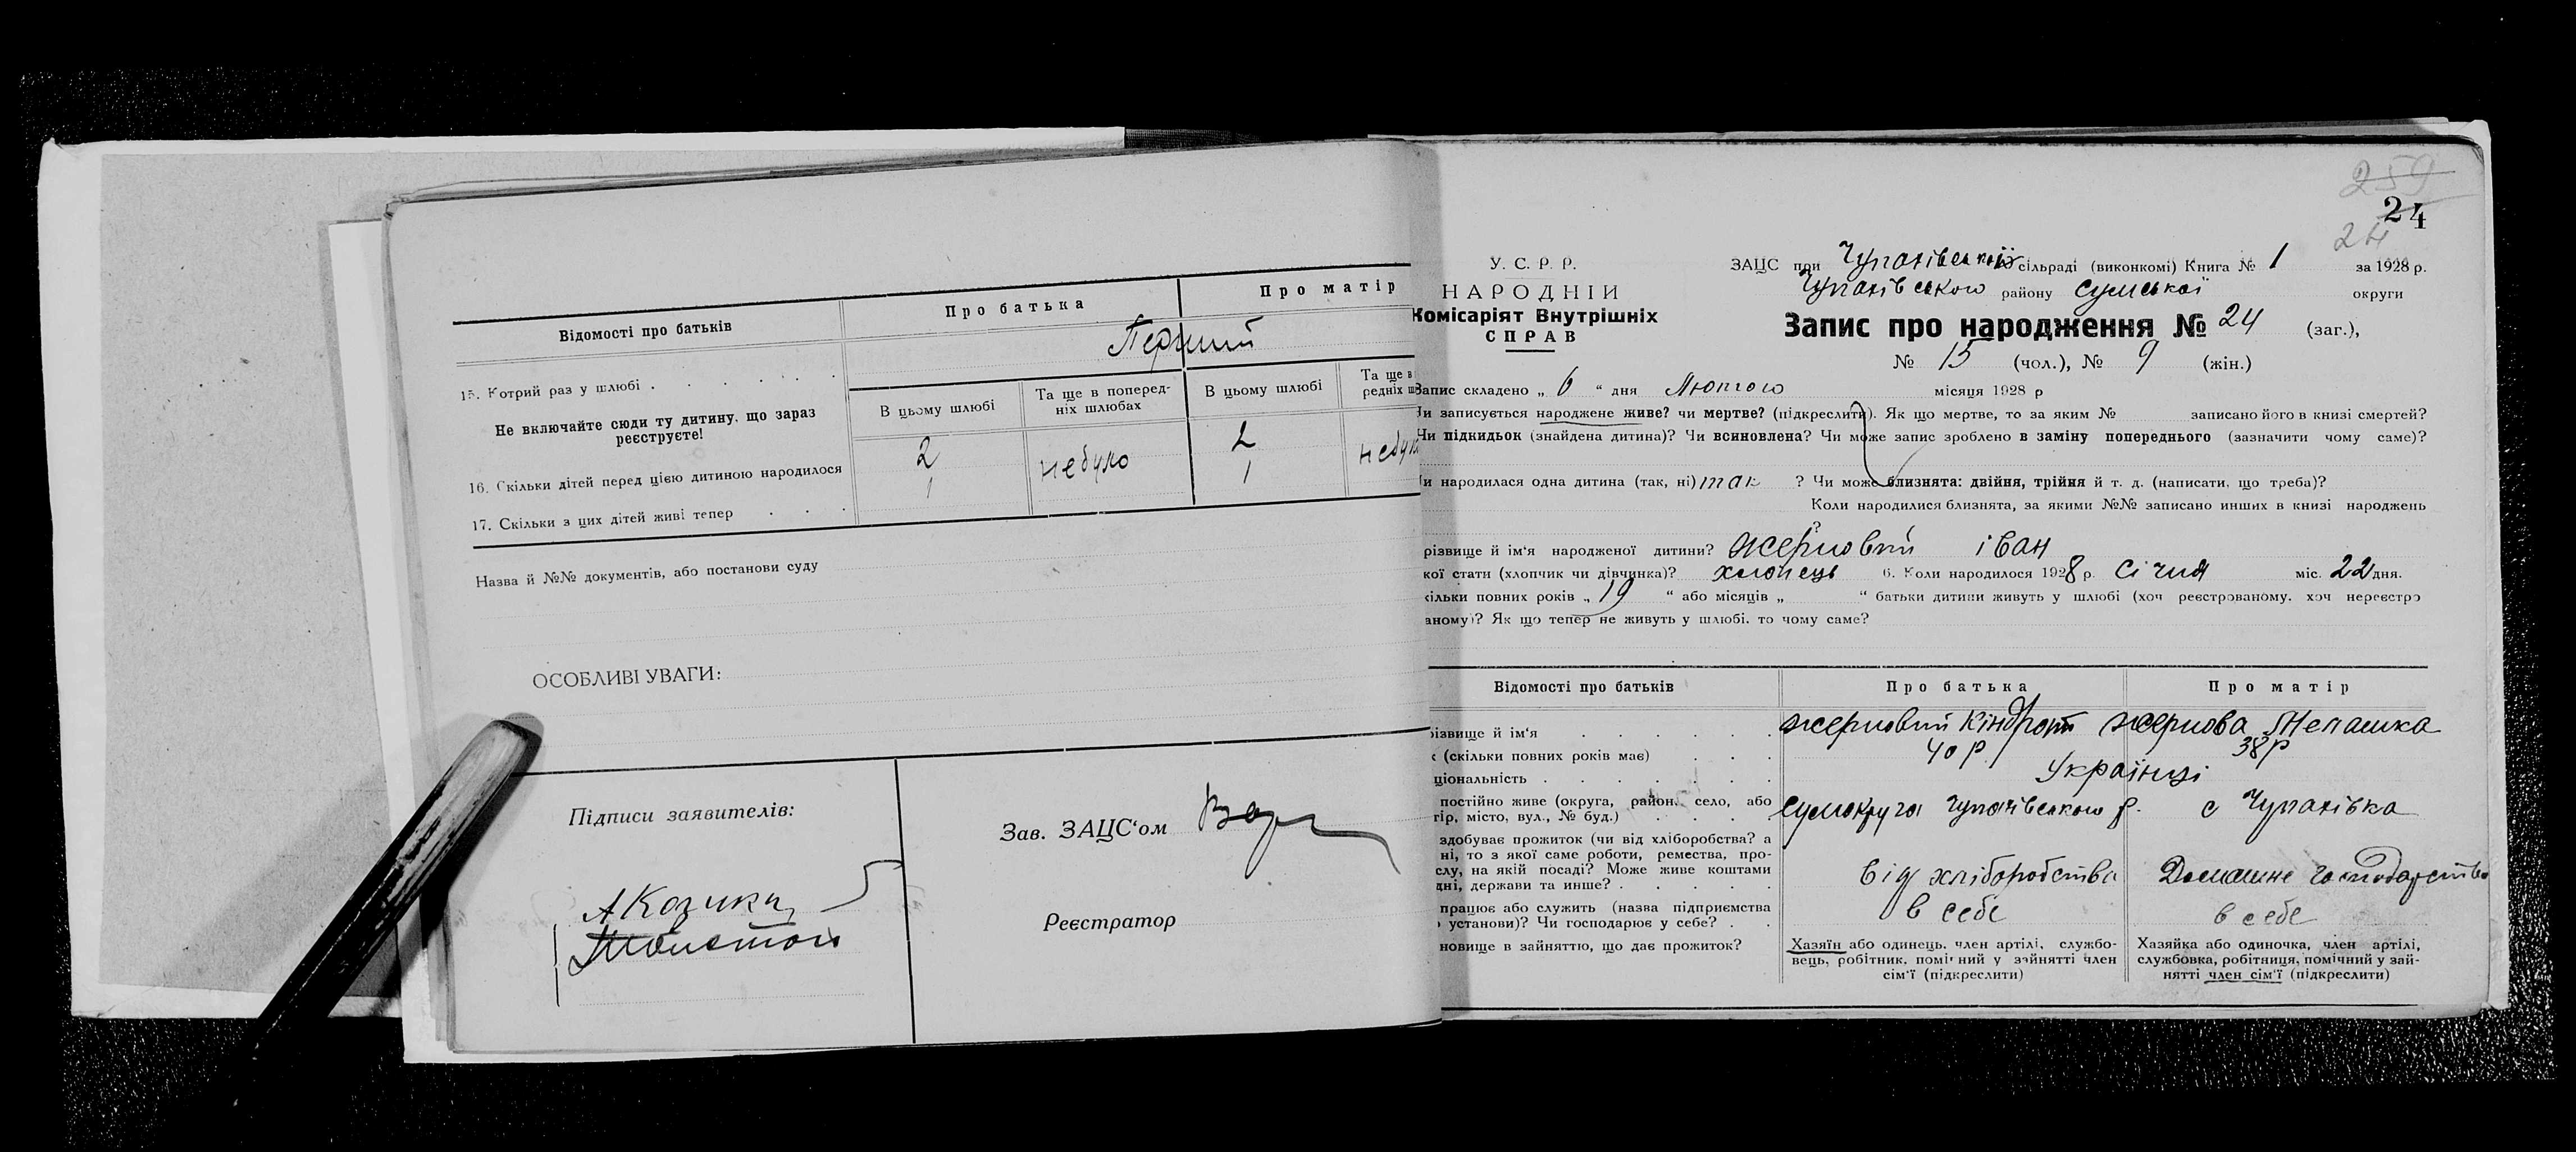 Відомості про батьків
Про батька
Про матір
15. Котрий раз у шлюбі
Перший
Не включайте сюди ту дитину, що зараз реєструєте!
В цьому шлюбі
Та ще в поперед-
ніх шлюбах
В цьому шлюбі
Та ще в
редніх ш
16. Скільки дітей перед цією дитиною народилося
2
небуло
2
17. Скільки з цих дітей живі тепер
1
1
Назва й №№ документів, або постанови суду
ОСОБЛИВІ УВАГИ:
Підписи заявителів:
Зав. ЗАЦС'ом
Реєстратор
259
24
24
У. С. Р. Р.
НАРОДНІЙ
Комісаріят Внутрішніх
СПРАВ
ЗАЦС при Чупахівській сільраді (виконкомі) Книга № 1 за 1928 р.
Чупахівського району Сумської округи
Запис про народження № 24 (заг.),
№ 15 (чол.), № 9 (жін.)
Запис складено „ 6 “ дня Лютого місяця 1928 р
Чи записується народжене живе? чи мертве? (підкреслити). Як що мертве, то за яким № записано його в книзі смертей?
Чи підкидьок (знайдена дитина)? Чи всиновлена? Чи може запис зроблено в заміну попереднього (зазначити чому саме)?
и народилася одна дитина (так, ні) так ? Чи може близнята: двійня, трійня й т. д. (написати, що треба)?
Коли народилися близнята, за якими №№ записано инших в книзі народжень
?
різвище й ім'я народженої дитини? Жерновий іван
кої стати (хлопчик чи дівчинка)? хлопець 6. Коли народилося 1928 р. Січня міс. 22 дня.
кільки повних років „ 19 “ або місяців „ “ батьки дитини живуть у шлюбі (хоч реєстрованому, хоч нереєстро
аному)? Як що тепер не живуть у шлюбі, то чому саме?
Відомості про батьків
Про батька
Про матір
різвище й ім'я
Жерновий Кіндрат
Жернова
к (скільки повних років має)
40 р.
38 р
ціональність
Українці
постійно живе (округа, район, село, або
тір, місто, вул., № буд.)
Сумокруга Чупахівського р.
с Чупахівка
здобуває прожиток (чи від хліборобства? а
ні, то з якої саме роботи, ремества, про-
слу, на якій посаді? Може живе коштами
дні, держави та инше?
від хліборобства
Домашне господарство
працює або служить (назва підприємства
установи)? Чи господарює у себе?
в себе
в себе
новище в зайняттю, що дає прожиток?
Хазяїн або одинець, член артілі, службо-
вець, робітник, помічний у зайнятті член
сім'ї (підкреслити)
Хазяйка або одиночка, член артілі,
службовка, робітниця, помічний у зай-
нятті член сім'ї (підкреслити)